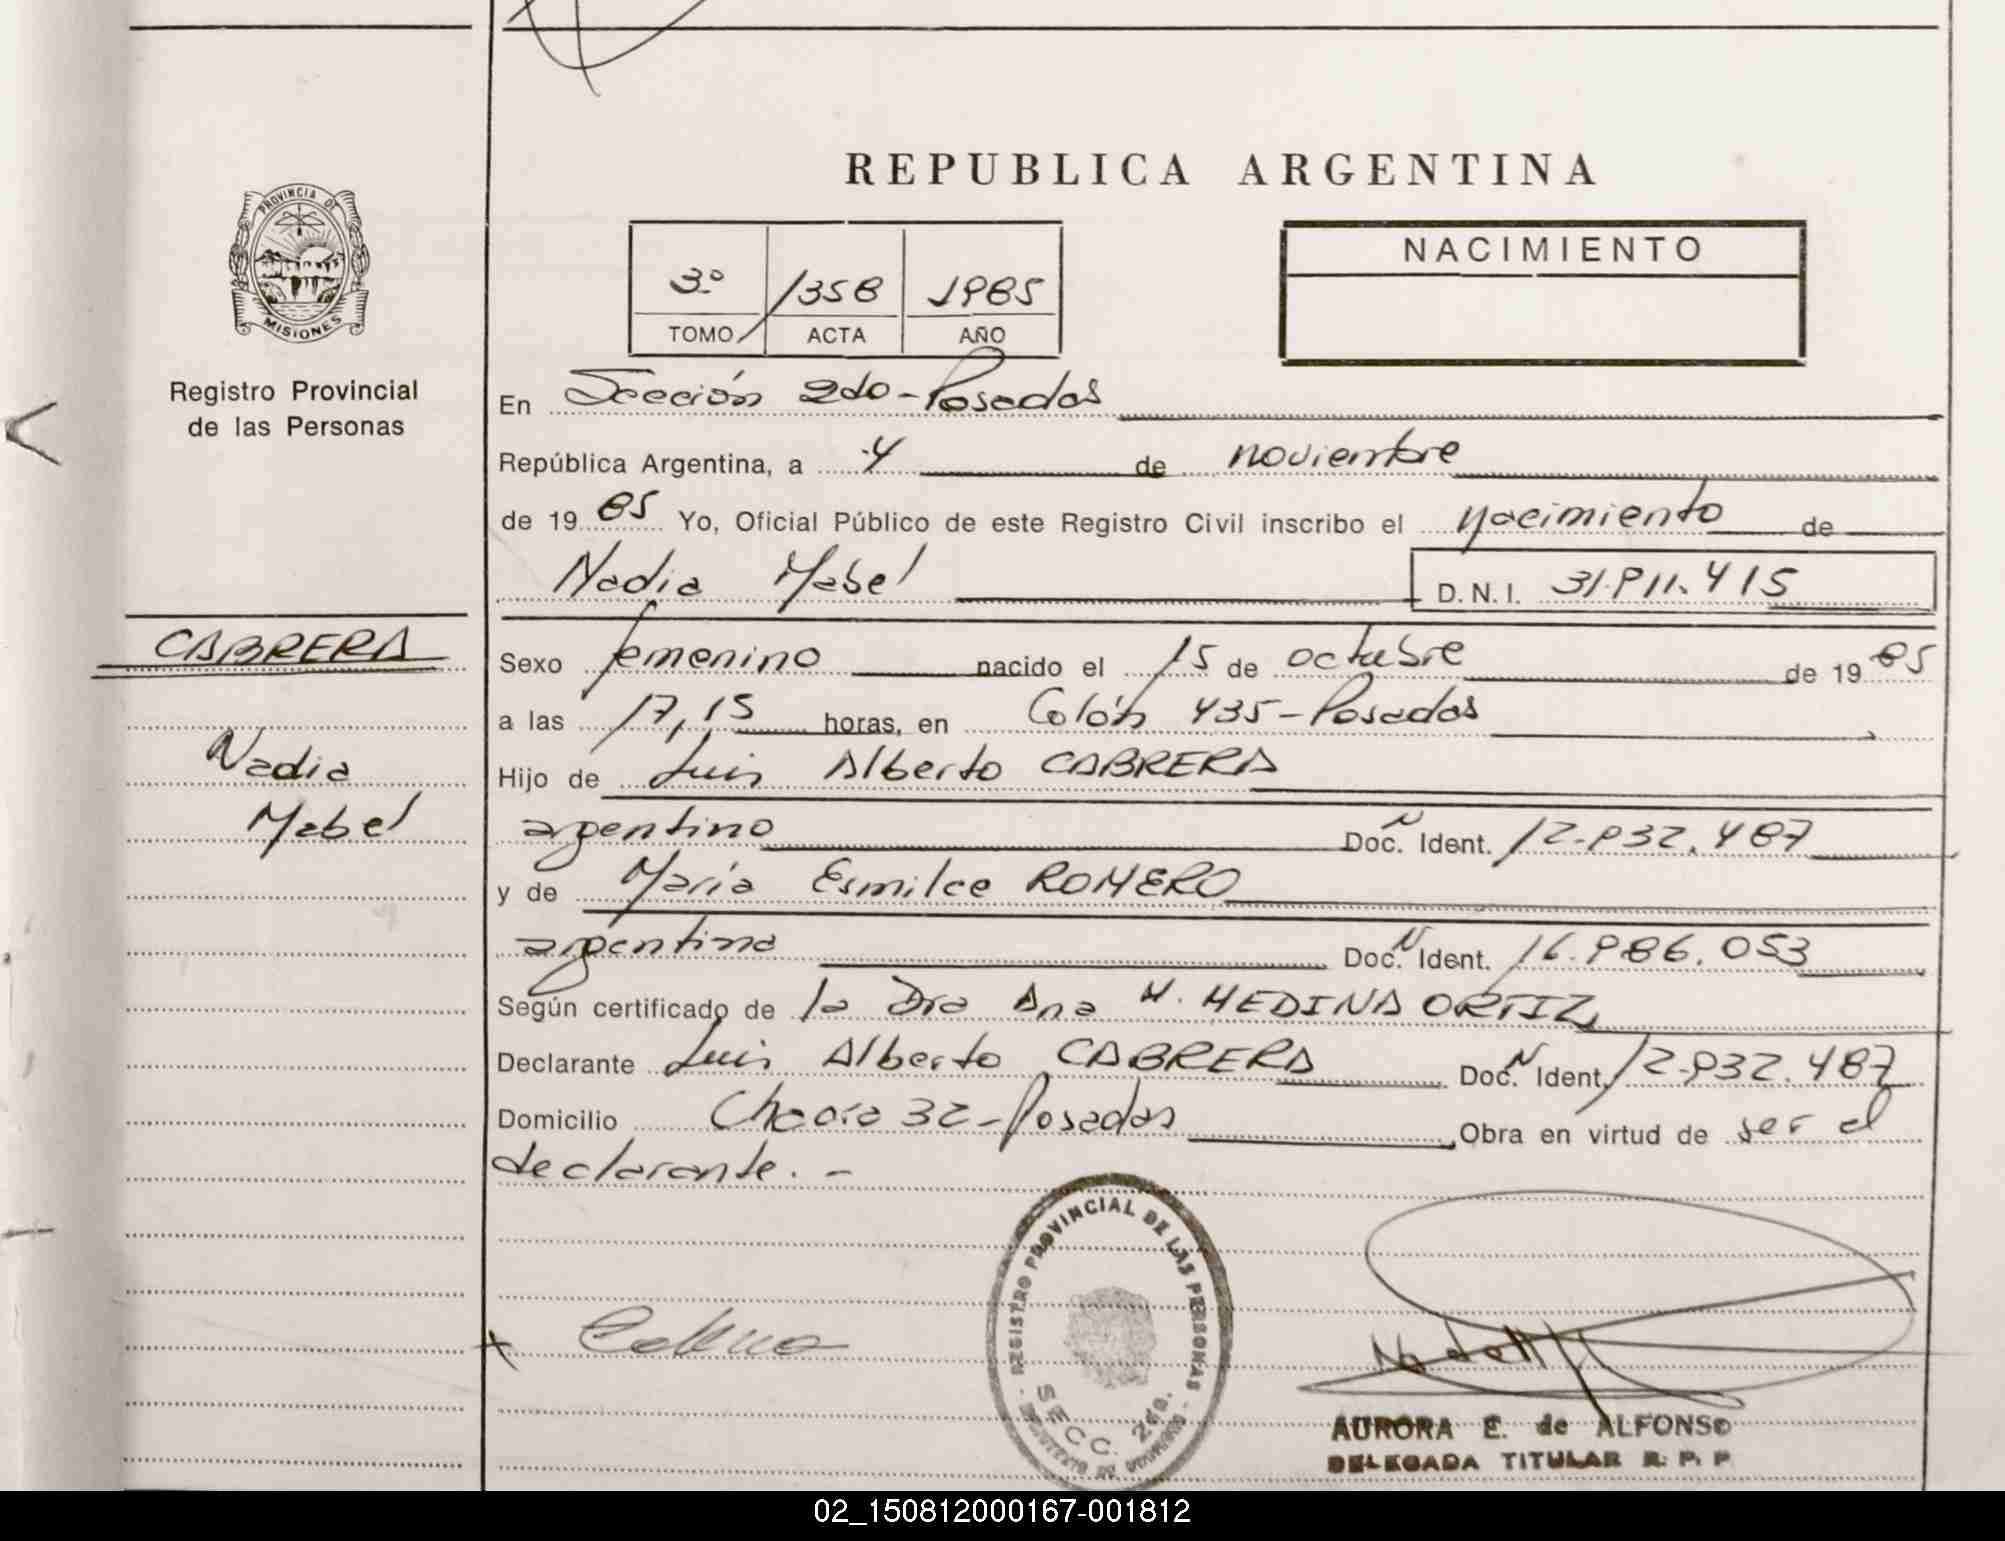 REPUBLICA ARGENTINA
PROVINCIA DE
MISIONES
Registro Provincial
de las Personas
3º 1358 1985
TOMO ACTA AÑO
NACIMIENTO
En Sección 2da - Posadas
República Argentina, a 4 de noviembre
de 19 85 Yo, Oficial Público de este Registro Civil inscribo el nacimiento de
Nadia Mabel D.N.I. 31.911.415
CABRERA
Nadia
Mabel
Sexo femenino nacido el 15 de octubre de 19 85
a las 17,15 horas, en Colón 435 - Posadas
Hijo de Luis Alberto CABRERA
argentino Doc. N Ident. 12.932.487
y de María Esmilce ROMERO
argentina Doc. N Ident. 16.986.053
Según certificado de la Dra Ana M. MEDINA ORTIZ
Declarante Luis Alberto CABRERA Doc. N Ident. 12.932.487
Domicilio Chacra 32 - Posadas Obra en virtud de ser el
declarante. -
REGISTRO PROVINCIAL DE LAS PERSONAS
SECC. 2da.
AURORA E. de ALFONSO
DELEGADA TITULAR R. P. P
02_150812000167-001812